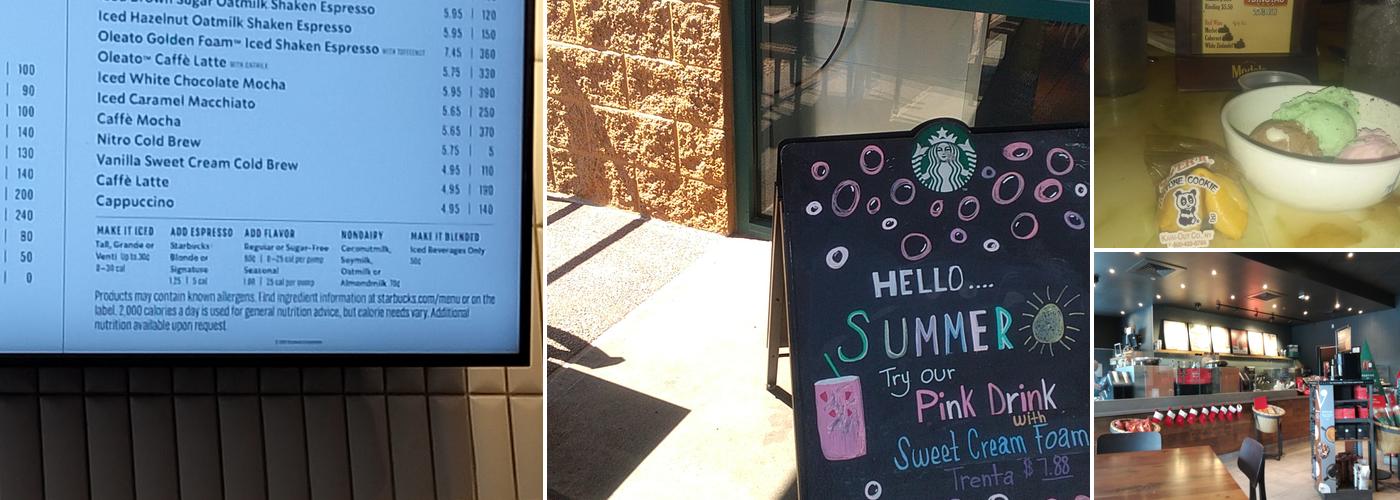 Brown Sugar Oatmilk Shaken Espresso 5.95 | 120
Iced Hazelnut Oatmilk Shaken Espresso 5.95 | 150
Oleato Golden Foam™ Iced Shaken Espresso WITH TOFFEENUT 7.45 | 360
Oleato™ Caffè Latte WITH OATMILK 5.75 | 330
Iced White Chocolate Mocha 5.95 | 390
Iced Caramel Macchiato 5.65 | 250
Caffè Mocha 5.65 | 370
Nitro Cold Brew 5.75 | 5
Vanilla Sweet Cream Cold Brew 4.95 | 110
Caffè Latte 4.95 | 190
Cappuccino 4.95 | 140
| 100
| 90
| 100
| 140
| 130
| 140
| 200
| 240
| 80
| 50
| 0
MAKE IT ICED
Tall, Grande or
Venti Up to 30¢
0–30 cal
ADD ESPRESSO
Starbucks®
Blonde or
Signature
1.25 | 5 cal
ADD FLAVOR
Regular or Sugar-Free
80¢ | 0–25 cal per pump
Seasonal
1.00 | 25 cal per pump
NONDAIRY
Coconutmilk,
Soymilk,
Oatmilk or
Almondmilk 70¢
MAKE IT BLENDED
Iced Beverages Only
50¢
Products may contain known allergens. Find ingredient information at starbucks.com/menu or on the
label. 2,000 calories a day is used for general nutrition advice, but calorie needs vary. Additional
nutrition available upon request.
HELLO....
SUMMER
Try our
Pink Drink
with
Sweet Cream Foam
Trenta $7.88
Riesling $5.50
Red Wine
Merlot
Cabernet
White Zinfandel
TSINGTAO
Modelo
COOKIE